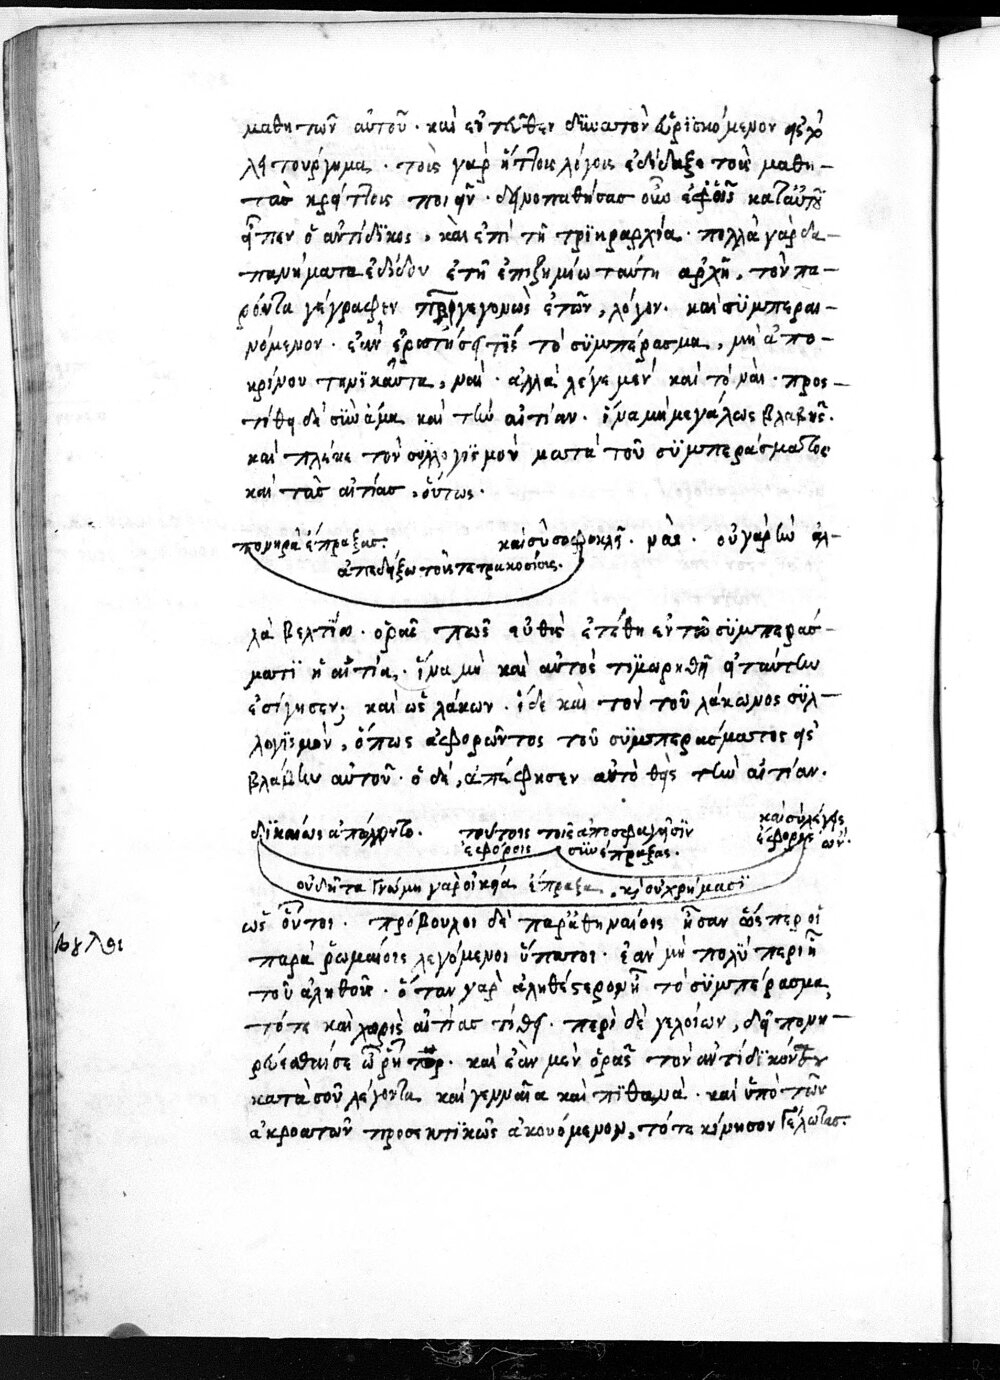 μαθητῶν αὐτοῦ · καὶ ἐντεῦθεν δϊκαστὸν εὑρϊσκόμενον
λειτούργημα · τοῖς γὰρ ἥττοις λόγοις ἐδίδαξε τοὺς μαθη-
τὰς κρείττοις ποιεῖν · δεινοπαθήσας οὖν ἐφ' οἷς κατ' αὐτοῦ
εἶπεν ὁ ἀντίδϊκος, καὶ ἐπὶ τῇ τριηραρχία · πολλὰ γὰρ δα-
πανήματα ἐδίδου ἐν τῇ ἐπιζημίω ταύτη ἀρχῇ, τὸν πα-
ρόντα γέγραφεν προγεγονὼς ἐτῶν, λόγον. καὶ σϋμπεραι-
νόμενον · ἐὰν ἐρωτήση τὶς τὸ σϋμπέρασμα, μὴ ἀπο-
κρίνου τηνϊκαῦτα, ναί · ἀλλὰ λέγε μὲν καὶ τὸ ναί · προσ-
τίθει δὲ σὺν ἅμα καὶ τὴν αἰτίαν. ἵνα μὴ μεγάλως βλαβῆς.
καὶ πλέκε τὸν σϋλλογϊσμὸν μετὰ τοῦ σϋμπεράσματος
καὶ τὰς αἰτίας, οὕτως.
πονηρὰ ἔπραξας. καὶ σὺ σοφόκλῆ. ναί. οὐ γὰρ ἦν ἀλ-
ἀπεδείξω τοὺς τετρακοσίους.
λὰ βελτίω. ὁρᾶς πῶς εὐθὺς ἐτέθη ἐν τῶ σϋμπεράσ-
ματϊ ἡ αἰτία. ἵνα μὴ καὶ αὐτὸς τϊμωρηθῆ εἰ ταύτην
ἐσίγησεν; καὶ ὡς λάκων. ἴδε καὶ τὸν τοῦ λάκωνος σϋλ-
λογϊσμὸν, ὅπως ἀφορῶντος τοῦ σϋμπεράσματος εἰς
βλάβην αὐτοῦ. ὁ δὲ, ἀπέφησεν αὐτὸ θεὶς τὴν αἰτίαν.
δϊκαίως ἀπόλλοντο. τούτοις τοῖς ἀποσφαγεῖσϊν καὶ σὺ
ἐφόροις συνέπραξας. ἔφορος ὢν.
οὐδῆτα γνώμη γὰρ οἰκεία ἔπραξα, κ οὐ χρήμασϊ
ὡς οὗτοι. πρόβουλοι δὲ παρ' ἀθηναίοις ἦσαν ὥσπερ οἱ
παρὰ ῥωμαίοις λεγόμενοι ὕπατοι. ἐὰν μὴ πολὺ περιῆ
τοῦ ἀληθοῦς. ὅταν γὰρ ἀληθέστερον ᾖ τὸ σϋμπέρασμα,
τότε καὶ χωρὶς αἰτίας τίθει. περὶ δὲ γελοίων,
καὶ ἐὰν μὲν ὁρᾶς τὸν ἀντίδϊκόν σου
κατὰ σοῦ λέγοντα καὶ γενναῖα καὶ πϊθανά. καὶ ὑπὸ τῶν
ἀκροατῶν προσεκτϊκῶς ἀκουόμενον, τότε κίνησον γέλωτας.